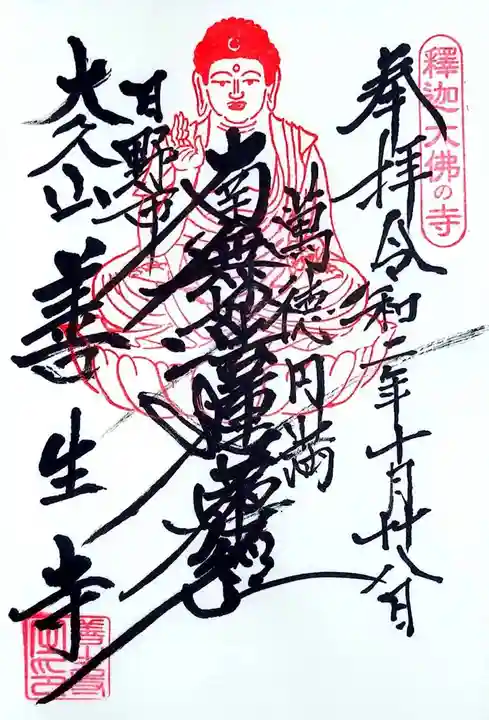 釋迦大佛の寺
奉拝 令和二年十月廿八日
萬徳円満
南無妙法蓮華経
日野市
大久山 善生寺